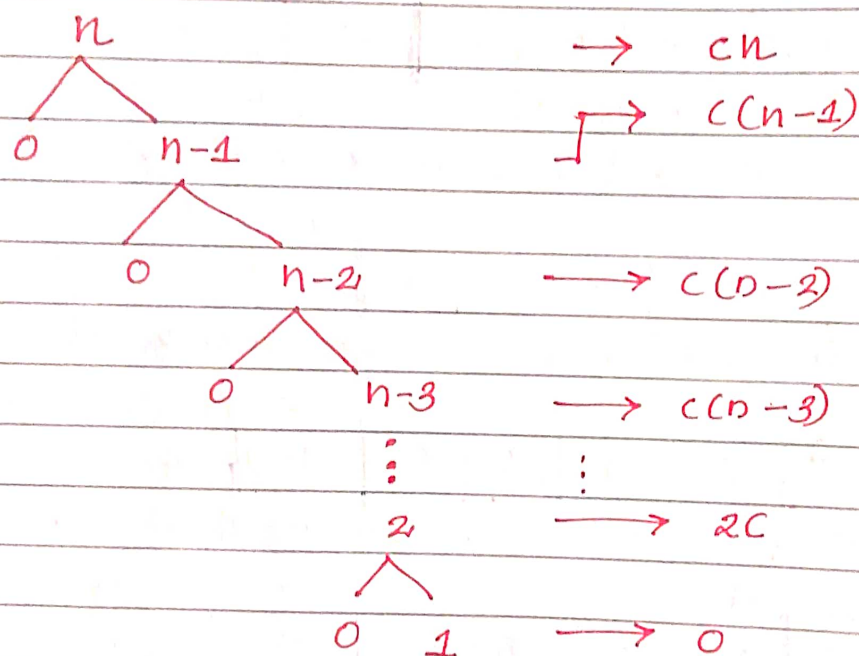 n → cn
0 n-1 → c(n-1)
0 n-2 → c(n-2)
0 n-3 → c(n-3)
⋮ ⋮
2 → 2c
0 1 → 0